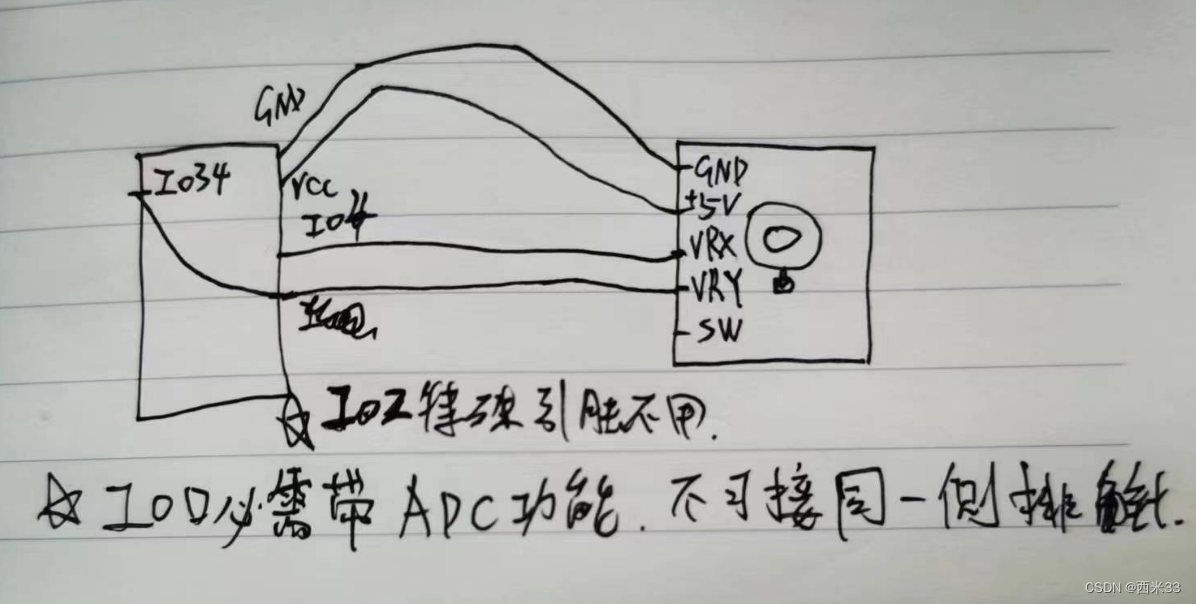 GND
IO34
VCC
IO4
GND
+5V
VRX
VRY
SW
☆ IO2特殊引脚不用.
☆ IO口必需带ADC功能.不可接同一侧排针.
CSDN @西米33